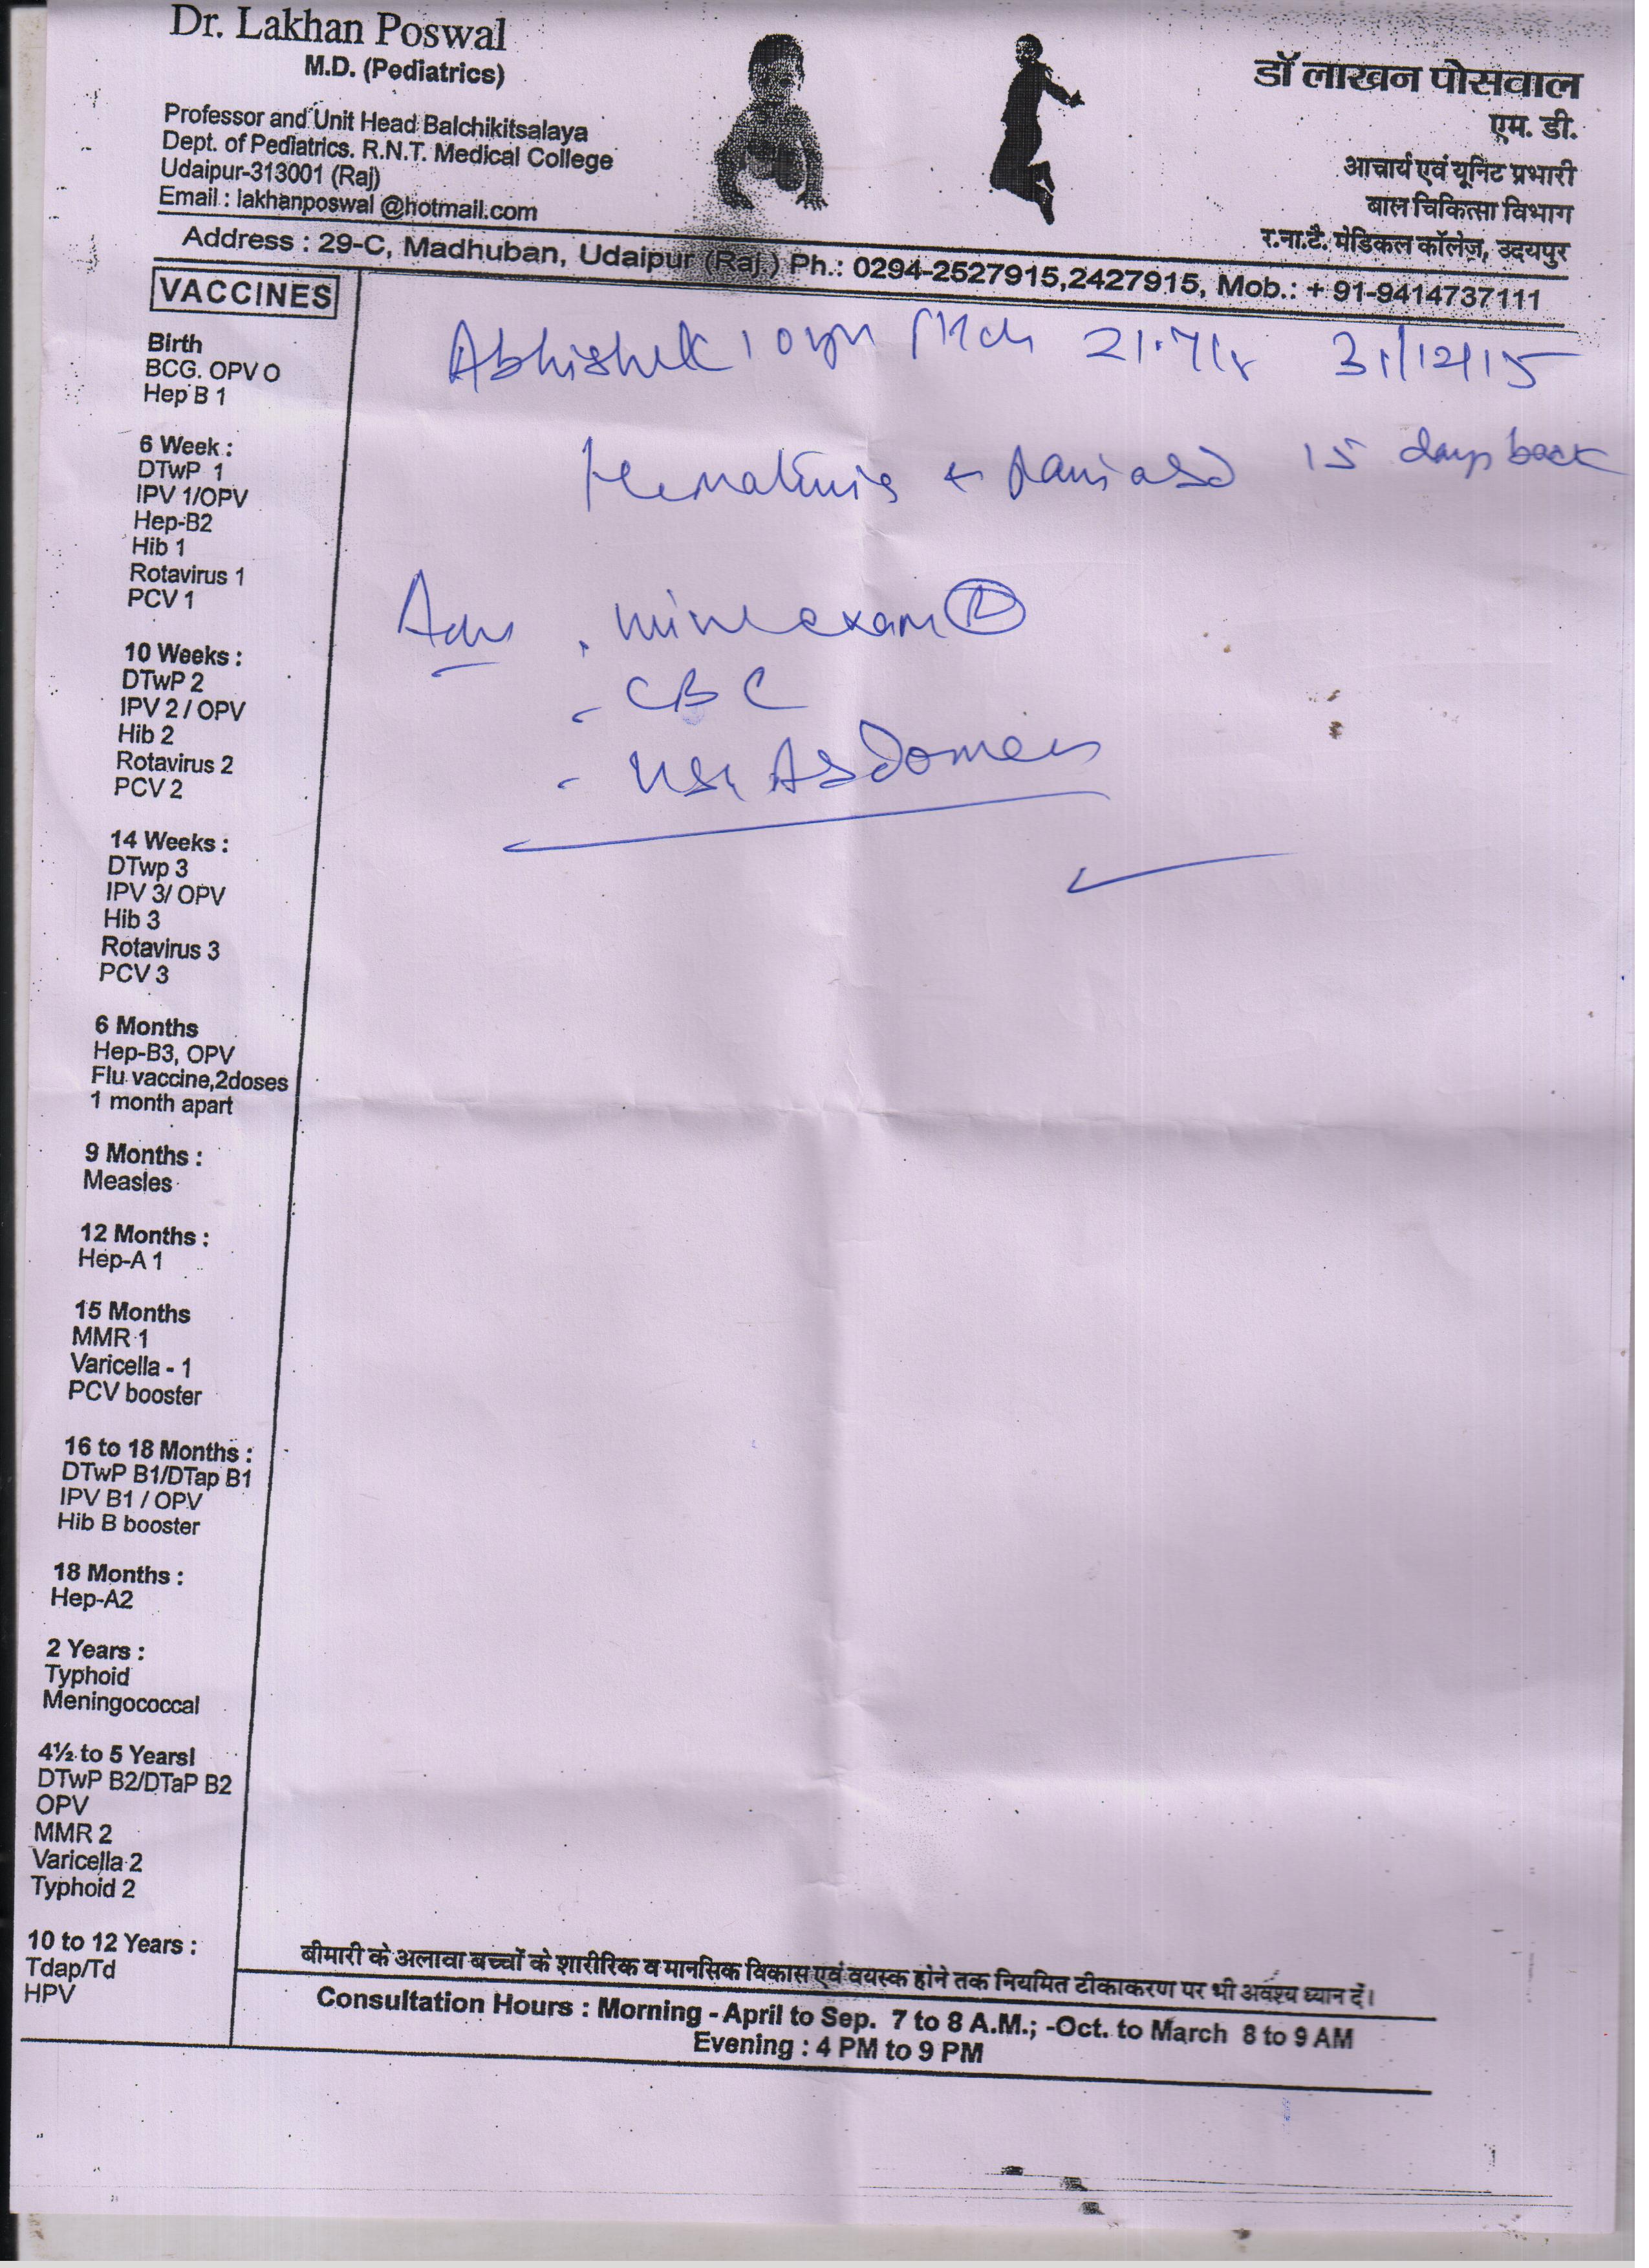 Dr. Lakhan Poswal
M.D. (Pediatrics)
Professor and Unit Head Balchikitsalaya
Dept. of Pediatrics. R.N.T. Medical College
Udaipur-313001 (Raj)
Email : lakhanposwal @hotmail.com
डॉ लाखन पोसवाल
एम. डी.
आचार्य एवं यूनिट प्रभारी
बाल चिकित्सा विभाग
र.ना.टै. मेडिकल कॉलेज, उदयपुर
Address : 29-C, Madhuban, Udaipur (Raj.) Ph.: 0294-2527915,2427915, Mob.: + 91-9414737111
VACCINES
Birth
BCG. OPV O
Hep B 1
6 Week :
DTwP 1
IPV 1/OPV
Hep-B2
Hib 1
Rotavirus 1
PCV 1
10 Weeks :
DTwP 2
IPV 2 / OPV
Hib 2
Rotavirus 2
PCV 2
14 Weeks :
DTwp 3
IPV 3/ OPV
Hib 3
Rotavirus 3
PCV 3
6 Months
Hep-B3, OPV
Flu vaccine,2doses
1 month apart
9 Months :
Measles
12 Months :
Hep-A 1
15 Months
MMR 1
Varicella - 1
PCV booster
16 to 18 Months :
DTwP B1/DTap B1
IPV B1 / OPV
Hib B booster
18 Months :
Hep-A2
2 Years :
Typhoid
Meningococcal
4½ to 5 Yearsl
DTwP B2/DTaP B2
OPV
MMR 2
Varicella 2
Typhoid 2
10 to 12 Years :
Tdap/Td
HPV
Abhishek 10 yr 31/12/15
Hematuria 15 days back
Adv . urine exam
- CBC
- USG Abdomen
बीमारी के अलावा बच्चों के शारीरिक व मानसिक विकास एवं वयस्क होने तक नियमित टीकाकरण पर भी अवश्य ध्यान दें।
Consultation Hours : Morning - April to Sep. 7 to 8 A.M.; -Oct. to March 8 to 9 AM
Evening : 4 PM to 9 PM